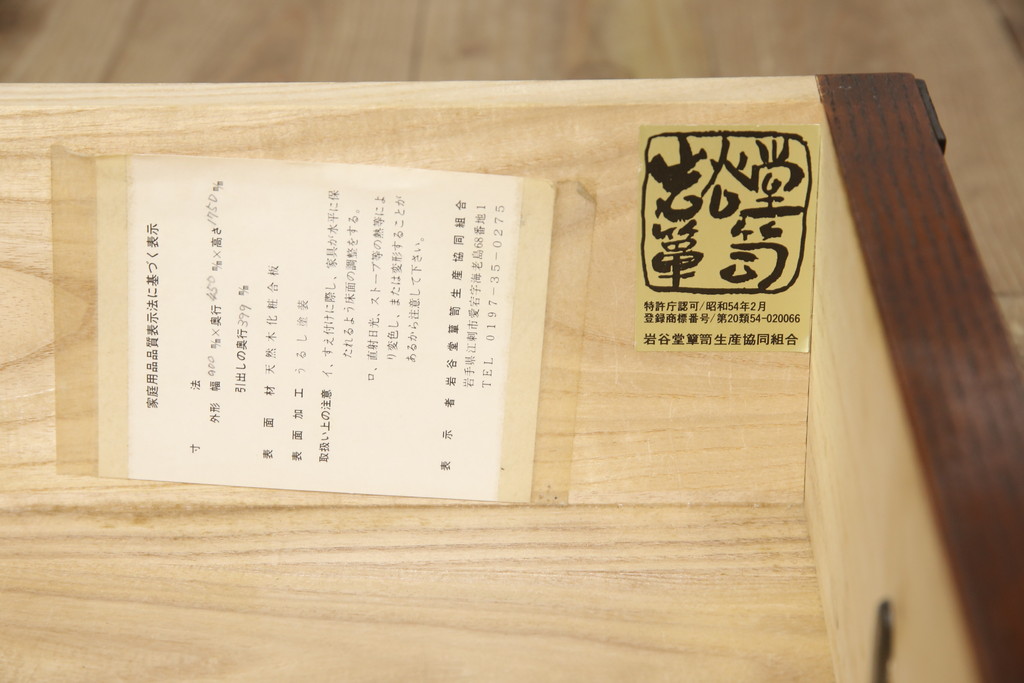 家庭用品品質表示法に基づく表示
寸法
外形 幅900㎜×奥行450㎜×高さ1750㎜
引出しの奥行399㎜
表面材 天然木化粧合板
表面加工 うるし塗装
取扱い上の注意 イ、すえ付けに際し、家具が水平に保
たれるよう床面の調整をする。
ロ、直射日光、ストーブ等の熱等によ
り変色し、または変形することが
あるから注意して下さい。
表示者 岩谷堂簞笥生産協同組合
岩手県江刺市愛宕字海老島68番地1
TEL 0197-35-0275
岩谷堂
簞笥
特許庁認可/昭和54年2月
登録商標番号/第20類54-020066
岩谷堂簞笥生産協同組合